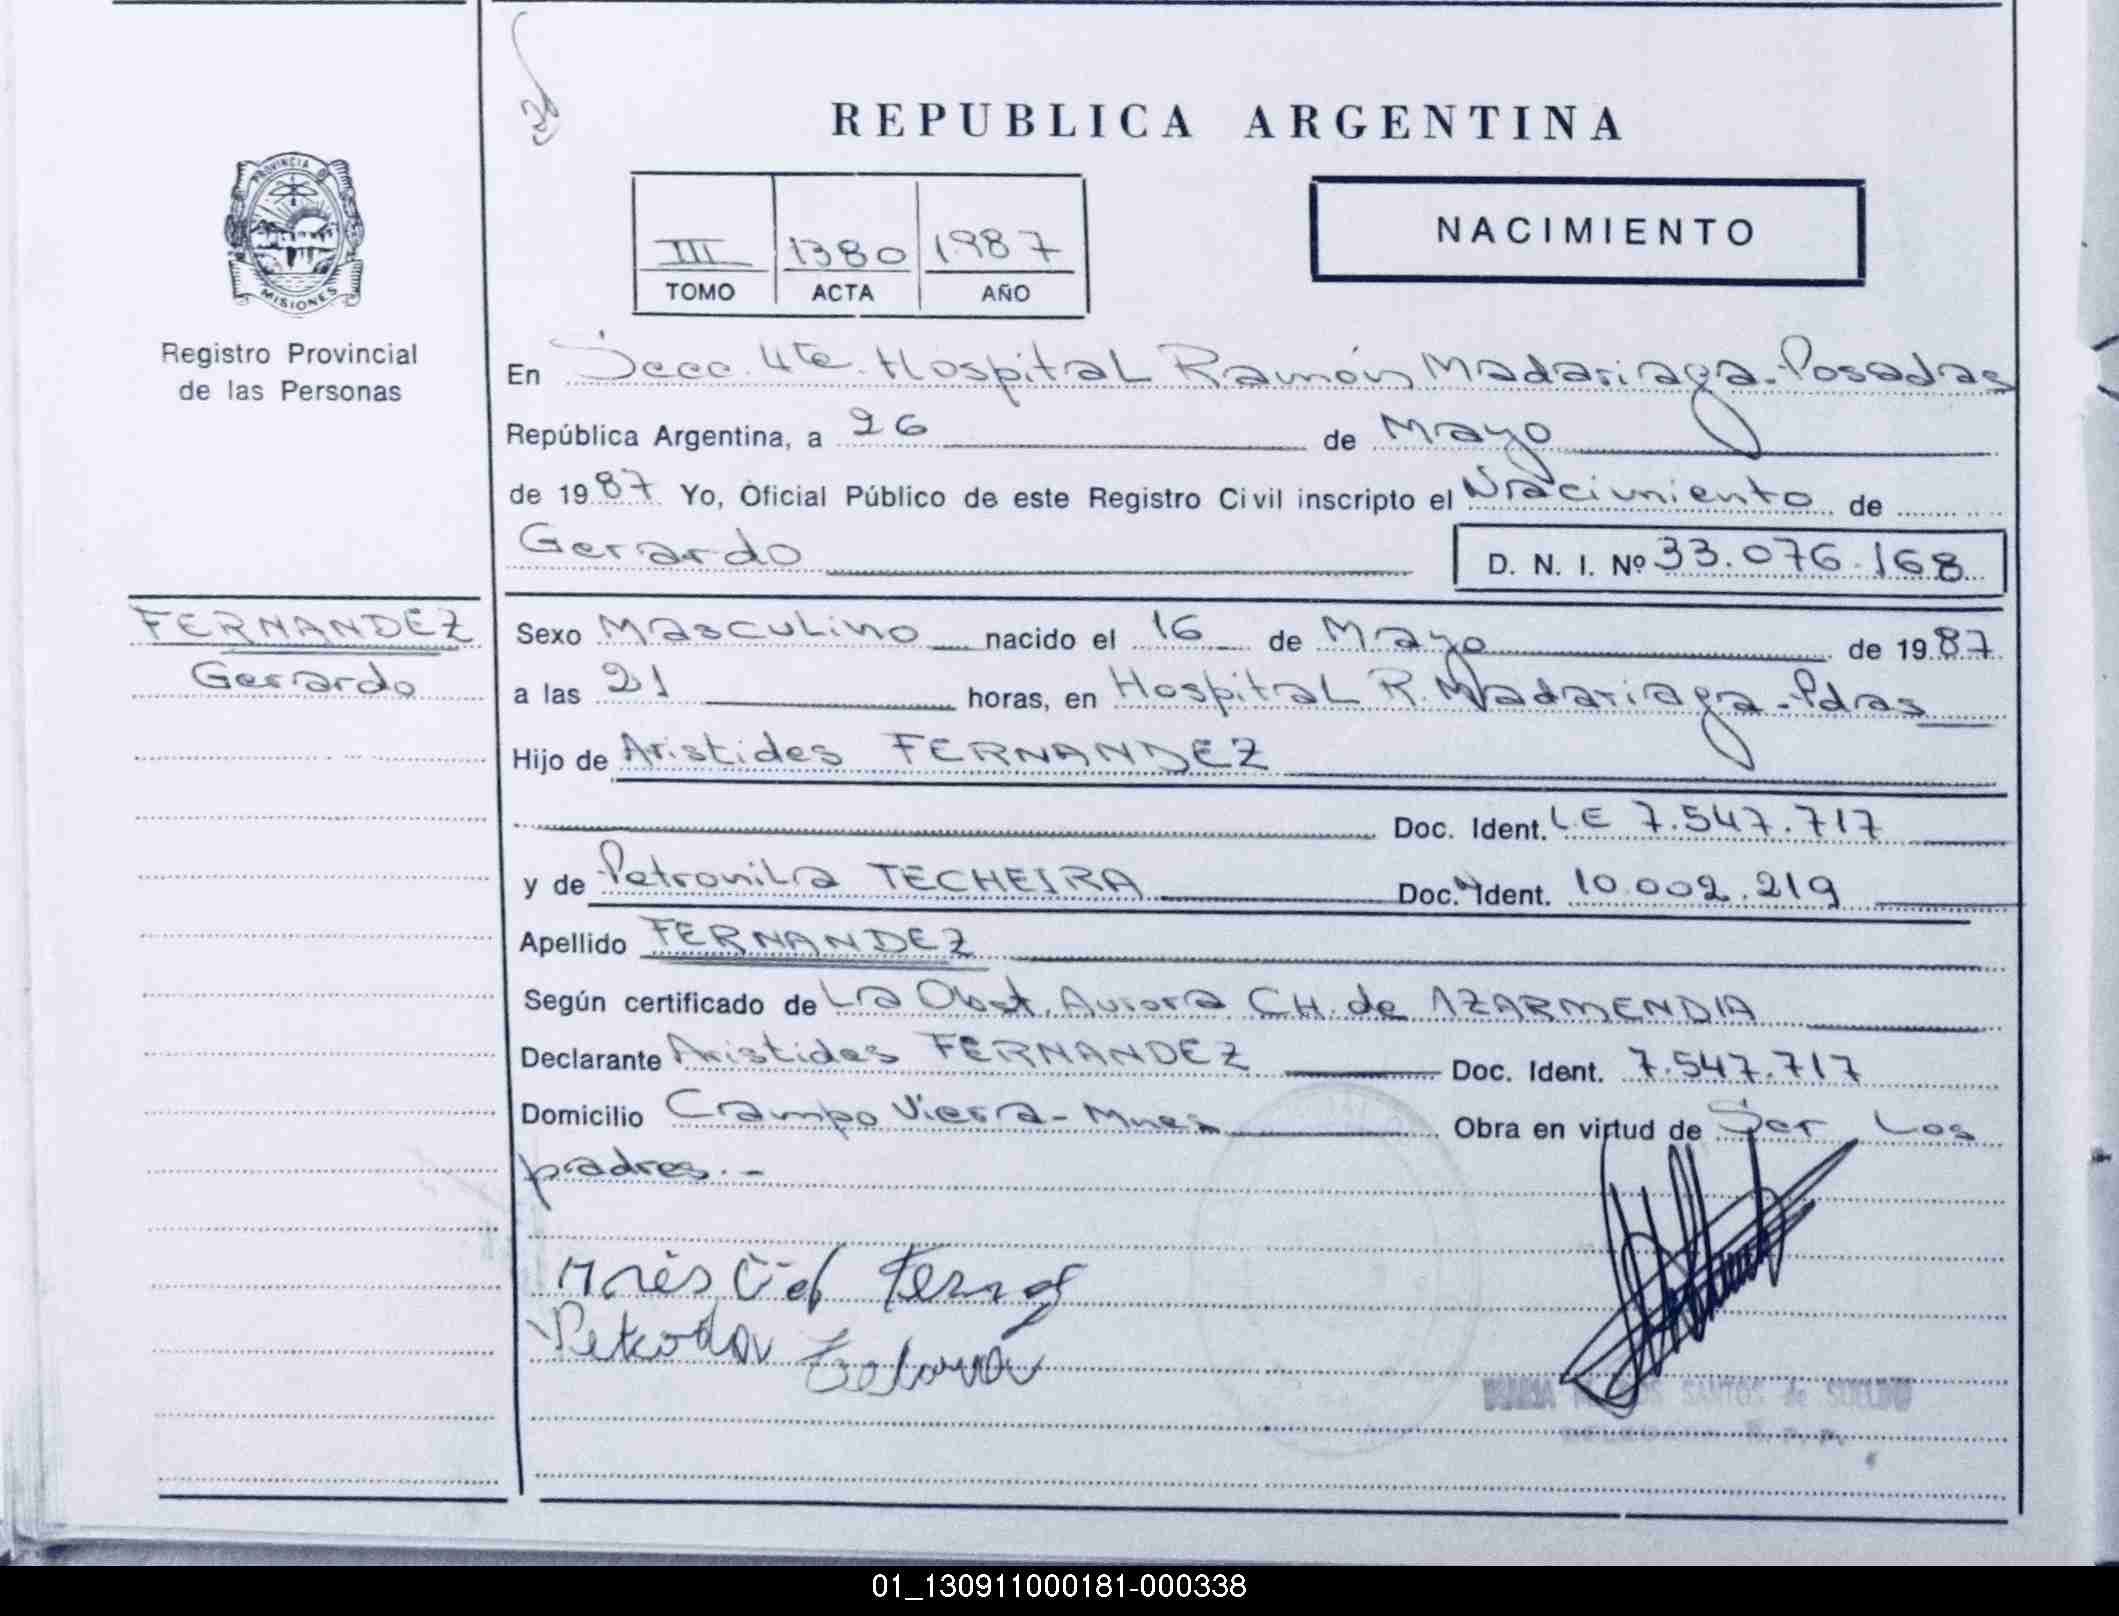 REPUBLICA ARGENTINA
PROVINCIA DE
MISIONES
Registro Provincial
de las Personas
NACIMIENTO
III 1380 1987
TOMO ACTA AÑO
En Secc. 4te. Hospital Ramón Madariaga - Posadas
República Argentina, a 26 de Mayo
de 1987 Yo, Oficial Público de este Registro Civil inscripto el Nacimiento de
Gerardo D. N. I. Nº 33.076.168
FERNANDEZ
Gerardo
Sexo Masculino nacido el 16 de Mayo de 1987
a las 21 horas, en Hospital R. Madariaga - Pdas
Hijo de Aristides FERNANDEZ
Doc. Ident. LE 7.547.717
y de Petronila TECHEIRA Doc. Ident. 10.002.219
Apellido FERNANDEZ
Según certificado de La Obst. Aurora CH. de AZARMENDIA
Declarante Aristides FERNANDEZ Doc. Ident. 7.547.717
Domicilio Campo Viera - Mnes Obra en virtud de Ser Los
padres. -
SANTOS de
01_130911000181-000338